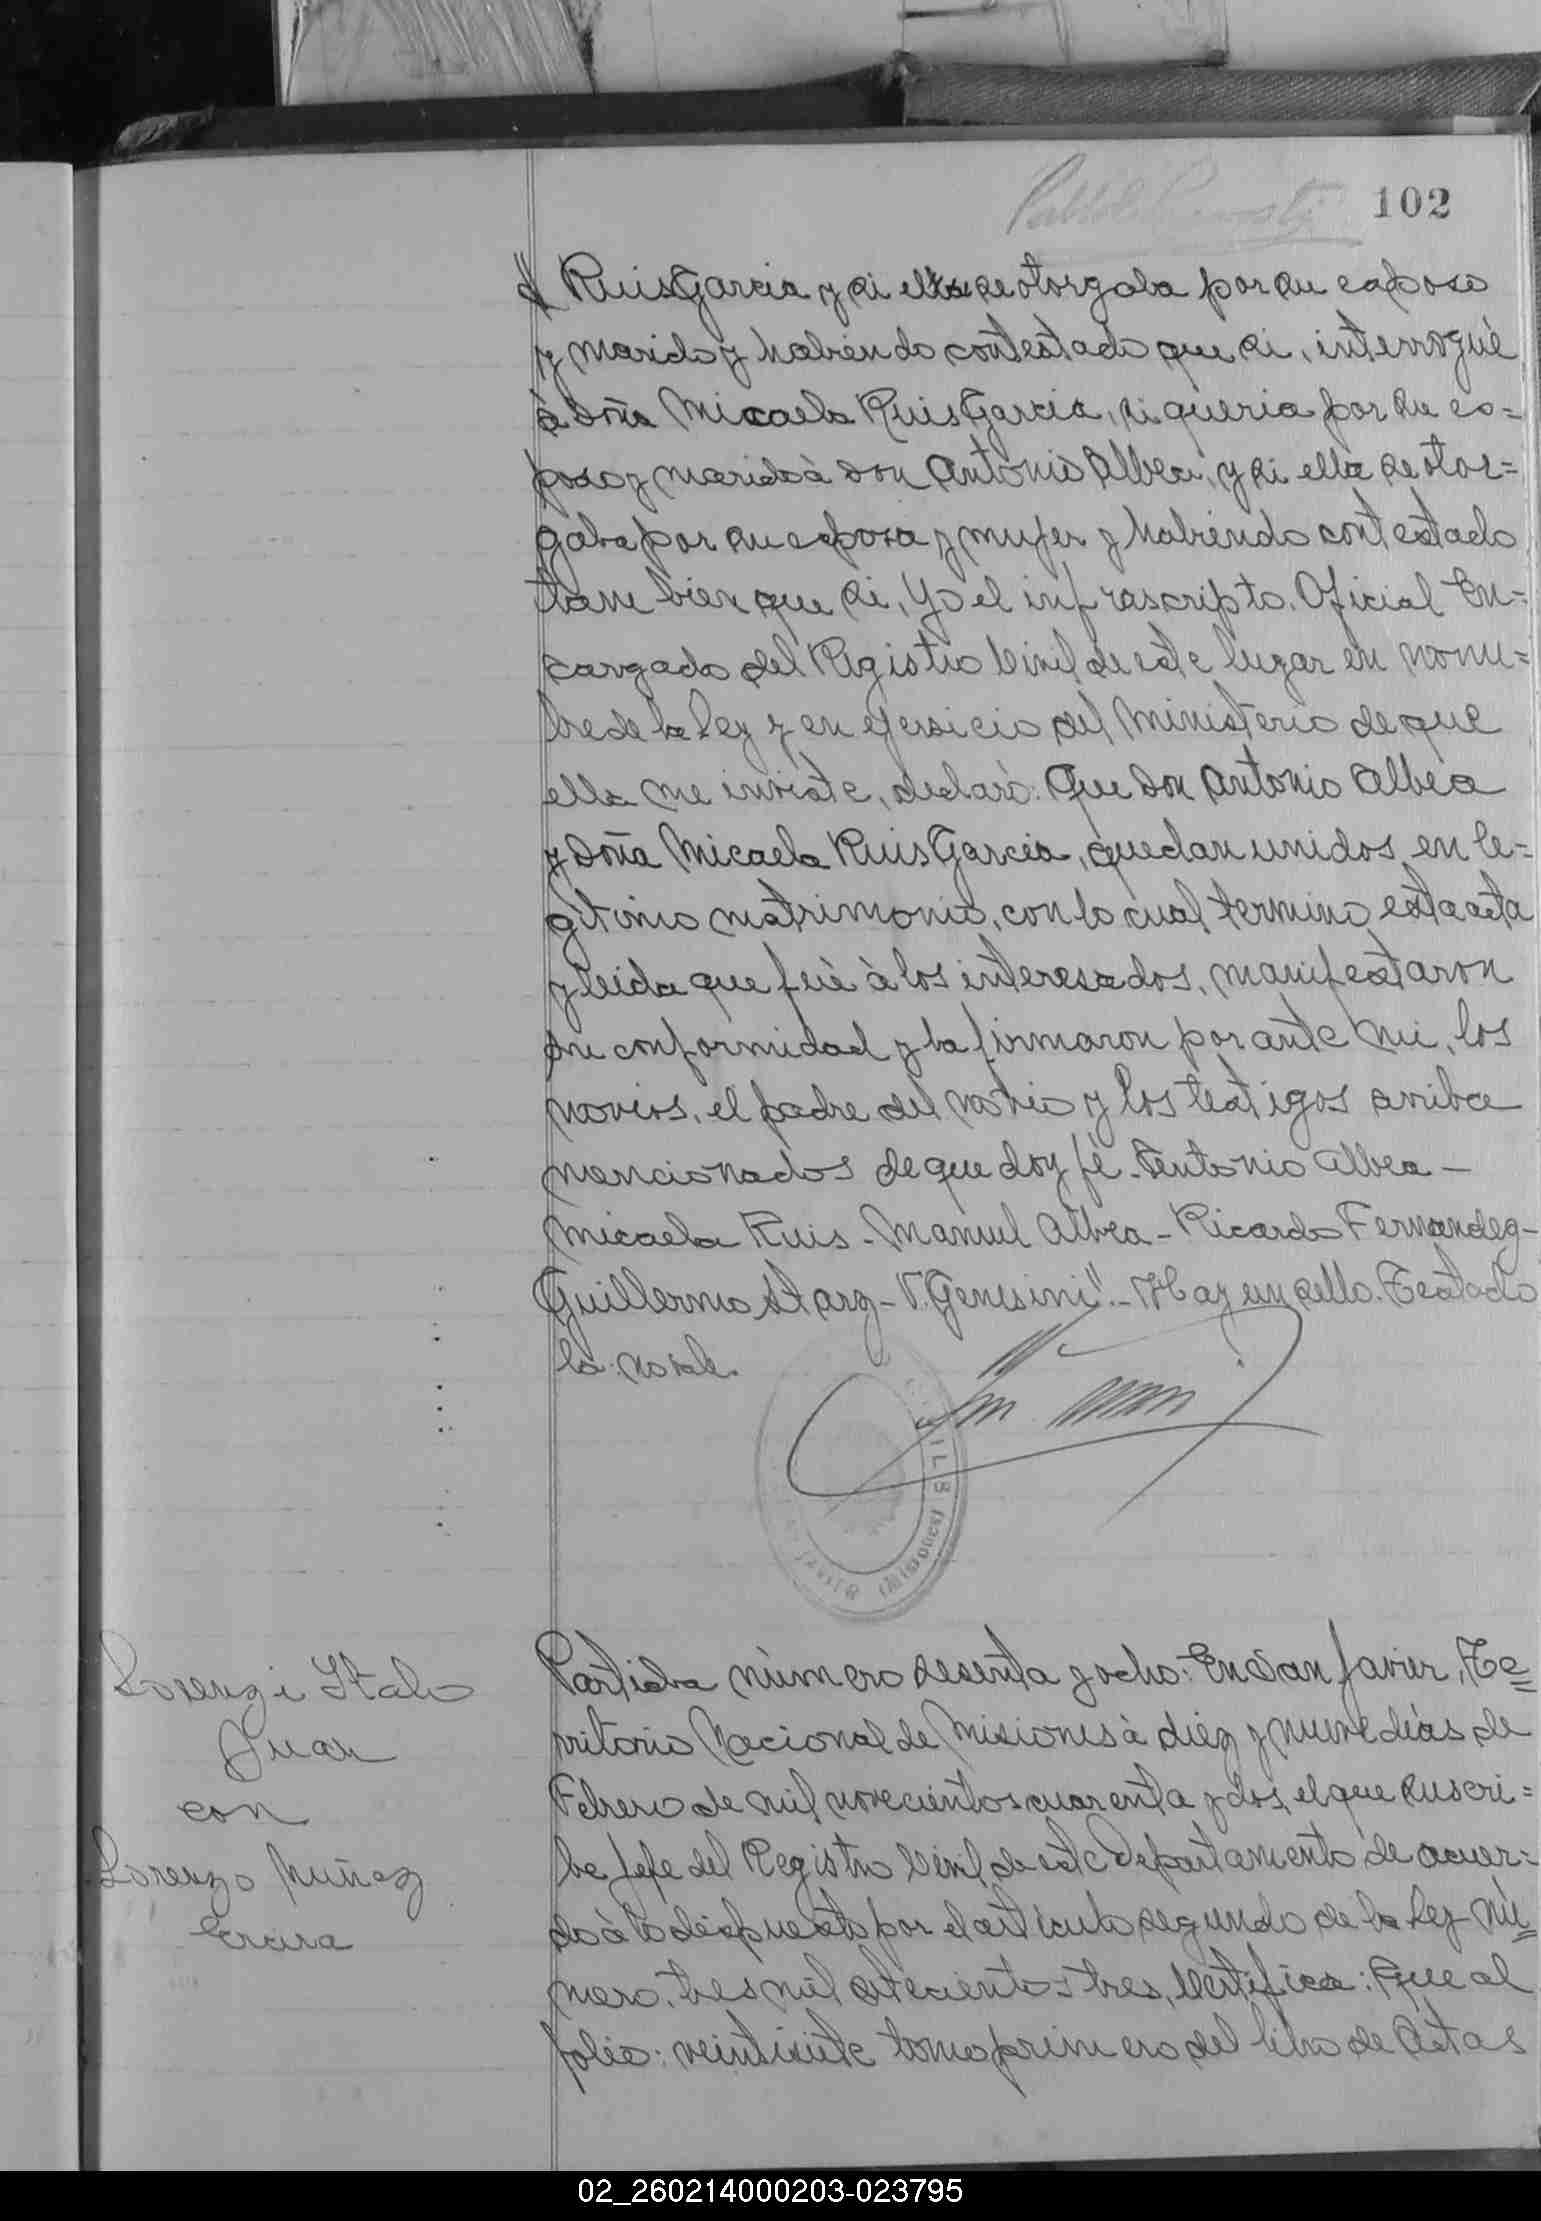 102
Ruis Garcia y si el se otorgaba por su esposo
y marido y habiendo contestado que si, interrogué
à Doña Micaela Ruis Garcia, si queria por su es=
poso y marido à Don Antonio Albea, y si ella se otor=
gaba por su esposa y mujer y habiendo contestado
tam bien que si, Yo el infrascripto. Oficial En=
cargado del Registro Civil de este lugar en nom=
bre de la Ley y en ejersicio del Ministerio de que
ella me inviste, declaró: Que Don Antonio Albea
y Doña Micaela Ruis Garcia, quedan unidos en le=
gitimo matrimonio, con lo cual termino esta acta
y leida que fué à los interesados, manifestaron
su conformidad y la firmaron por ante mi, los
novios, el padre del novio y los testigos arriba
mencionados de que doy fé. Antonio Albea -
Micaela Ruis - Manuel Albea - Ricardo Fernandez -
Guillermo Starz - V. Genesini".- Hay un sello. Testado
la: no vale.
(Misiones)
Lorenzi Italo
Juan
con
Lorenzo Nuñez
Partida número sesenta y ocho: En San Javier, Te=
rritorio Nacional de Misiones à diez y nueve dias de
Febrero de mil novecientos cuarenta y dos, el que suscri=
be Jefe del Registro Civil de este Departamento de acuer=
do à lo dispuesto por el articulo segundo de la Ley Nú=
mero. tres mil setecientos tres, Certifica: Que al
folio: veintisiete tomo primero del libro de Actas
02_260214000203-023795